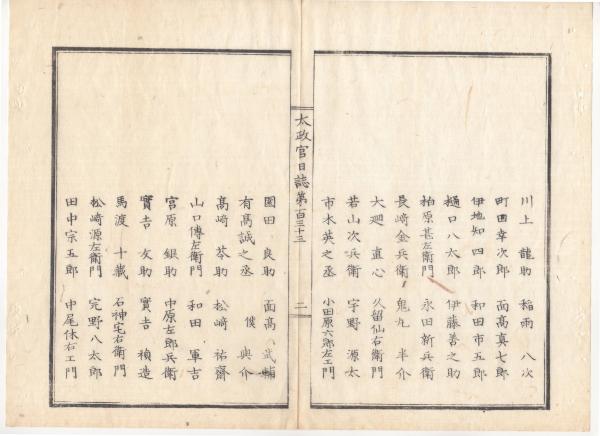 川上 龍助 稲雨 八次
町田幸次郎 面高真七郎
伊地知四郎 和田市五郎
樋口八太郎 伊藤善之助
柏原甚左衛門 永田新兵衛
長崎金兵衛 鬼丸半介
大廻直心 久留仙右衛門
若山次兵衛 宇野源太
市木英之丞 小田原六郎左エ門
太政官日誌 第百三十三 二
園田良助 面高武輔
有馬誠之丞 僕與介
高崎苓助 松崎祐齋
山口傳左衛門 和田軍吉
宮原銀助 中原左郎兵衛
實吉友助 實吉禎造
馬渡十藏 石神宅右衛門
松崎源左衛門 完野八太郎
田中宗五郎 中尾休右エ門